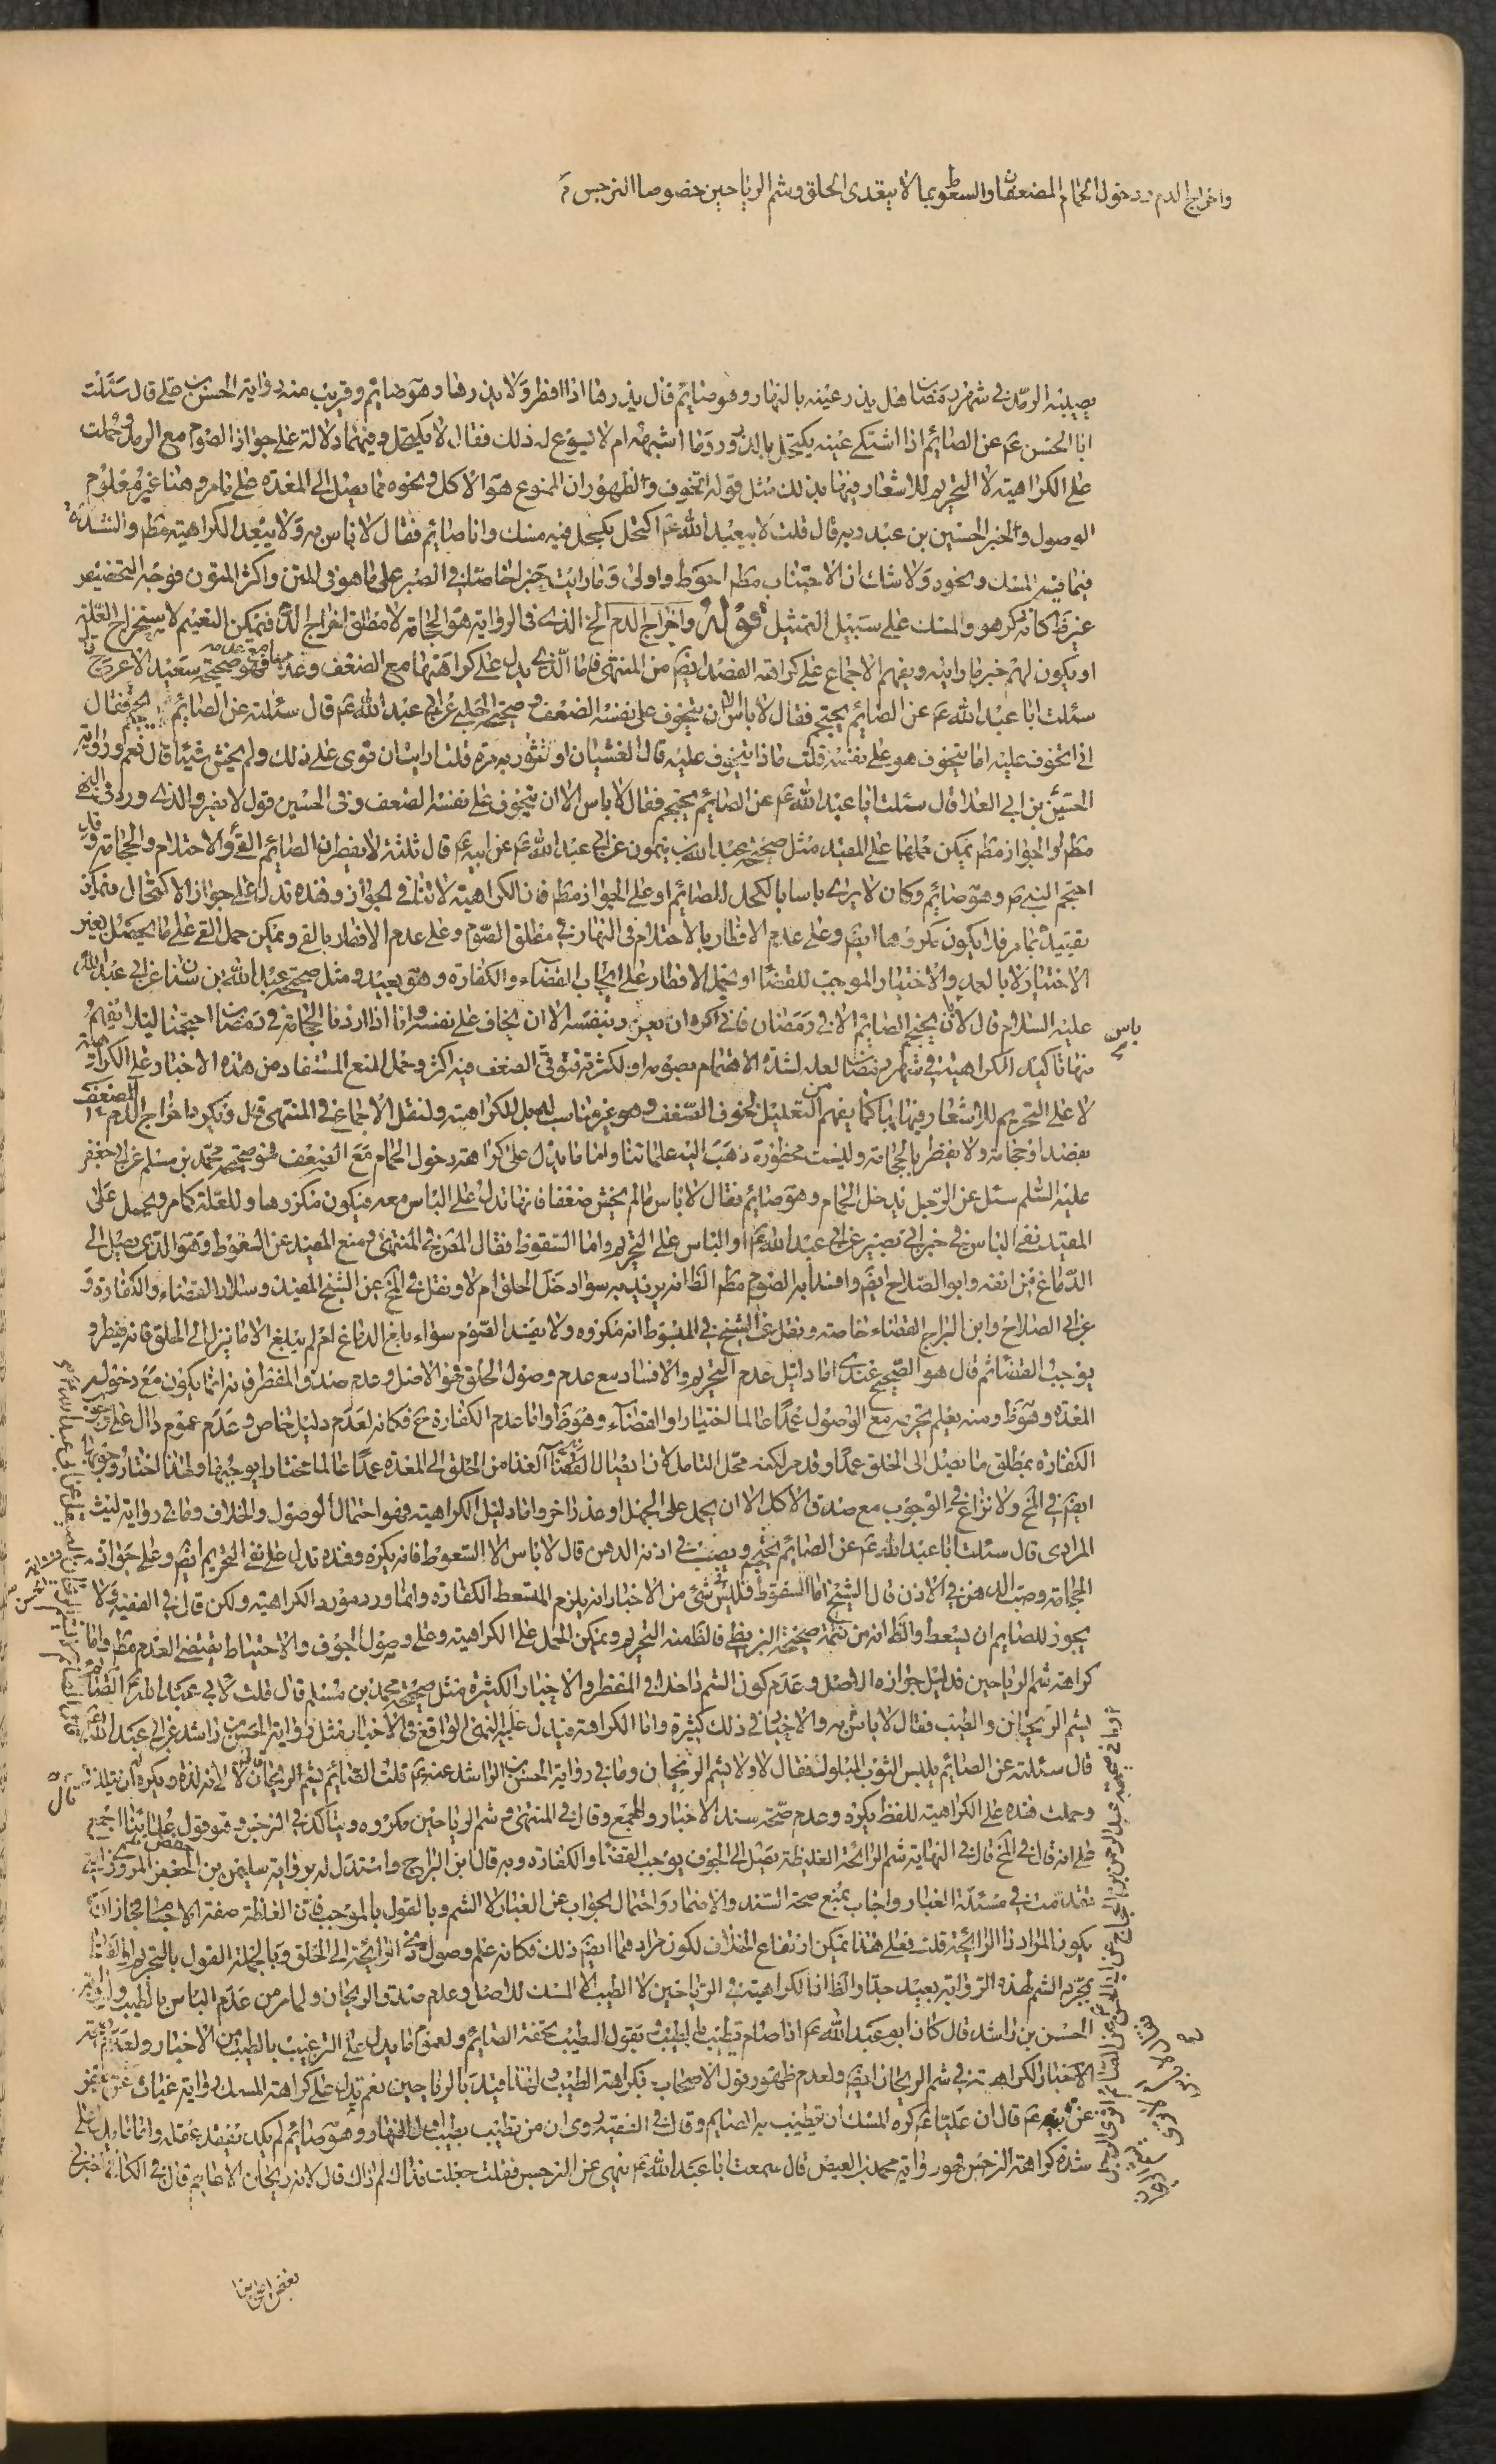 واخراج الدم ودخول الحمام المضعفان والسعوط بما لا يتعدى الحلق وشم الرياحين خصوصا النرجس
يصيبه الرمد في شهر رمضان هل يذر عينه بالنهار وهو صائم قال يذرها اذا افطر ولا يذرها وهو صائم وقريب منه رواية الحسن بن علي قال سئلت
ابا الحسن ع عن الصائم اذا اشتكى عينه يكتحل بالذرور وما اشبهه ام لا يسوغ له ذلك فقال لا يكتحل وفيهما دلالة على جواز الصوم مع الرمد وحملت
على الكراهية لا التحريم للاشعار فيها بذلك مثل قوله اتخوف والظهور ان الممنوع هو الاكل ونحوه مما يصل الى المعدة على ما مر وهنا غير معلوم
الوصول والخبر الحسين بن قال قلت لابي عبد الله ع اكتحل بكحل فيه مسك وانا صائم فقال لا باس به ولا يبعد الكراهية مطم والشدة
فيما فيه المسك ونحوه ولا شك ان الاجتناب مطم احوط واولى وما رايت خبرا خاصا في الصبر على ما هو في المتن واكثر المتون فوجه التخصيص
غير ظ كانه مكرهو والمسك على سبيل التمثيل قوله واخراج الدم الخ الذي في الرواية هو الحجامة لا مطلق اخراج الدم فيمكن التعميم لاستخراج العلة
او يكون لهم خبر ما رايته ويفهم الاجماع على كراهة الفصد ايضا من المنتهى فاما الذي يدل على كراهتها مع الضعف وعدمها مع عدمه فهو صحيحة سعيد الاعرج قال
سئلت ابا عبد الله ع عن الصائم يحتجم فقال لا باس الا ان يتخوف على نفسه الضعف وصحيحة الحلبي عن ابي عبد الله ع قال سئلته عن الصائم ايحتجم فقال
اني اتخوف عليه اما يتخوف هو على نفسه قلت ماذا يتخوف عليه قال الغشيان او تثور به مرة قلت ارايت ان قوي على ذلك ولم يخش شيئا قال نعم ورواية
الحسين بن ابي العلا قال سئلت ابا عبد الله ع عن الصائم يحتجم فقال لا باس الا ان يتخوف على نفسه الضعف وفي الحسين قول لا يضر والذي ورد في النهي
مطم او الجواز مطم يمكن حملها على المقيد مثل صحيحة عبد الله بن ميمون عن ابي عبد الله ع عن ابيه ع قال ثلثة لا يفطرن الصائم القي والاحتلام والحجامة وقد
احتجم النبي ص وهو صائم وكان لا يرى باسا بالكحل للصائم او على الجواز مطم فان الكراهية لا تنافي الجواز وهذه تدل على جواز الاكتحال فيمكن
تقييده بما مر فلا يكون مكروها ايضا وعلى عدم الافطار بالاحتلام في النهار في مطلق الصوم وعلى عدم الافطار بالقي ويمكن حمل القي على ما يحصل بغير
الاختيار لا بالعمد والاختيار الموجب للقضا او يحمل الافطار على ايجاب القضاء والكفارة وهو بعيد ومثل صحيحة عبد الله بن سنان عن ابي عبد الله
عليه السلام قال لا باس يحتجم الصائم الا في رمضان فاني اكره ان يغرر بنفسه الا ان يخاف على نفسه وانا اذا اردنا الحجامة في رمضان احتجمنا ليلا يفهم
منها تاكيد الكراهية في شهر رمضان لعله لشدة الاهتمام بصومه او لكثرة توقي الضعف فيه اكثر وحمل المنع المستفاد من هذه الاخبار على الكراهة
لا على التحريم للاشعار فيها بها كما يفهم من التعليل بخوف الضعف وهو غير مناسب للمبل للكراهية ولنقل الاجماع في المنتهى قيل ويكره اخراج الدم المضعف
بفصد او حجامة ولا يفطر بالحجامة وليست محظورة ذهب اليه علمائنا واما ما يدل على كراهة دخول الحمام مع الضعف فهو صحيحة محمد بن مسلم عن ابي جعفر
عليه السلم سئل عن الرجل يدخل الحمام وهو صائم فقال لا باس ما لم يخش ضعفا فانها تدل على الباس معه فيكون مكروها وللعلة كما مر ويحمل على
المقيد نفي الباس في خبر ابي بصير عن ابي عبد الله ع او الباس على التحريم واما السعوط فقال المص في المنتهى ومنع المفيد عن السعوط وهو الذي يصل الى
الدماغ من انفه وابو الصلاح ايضا وافسدا به الصوم مطم الظ انه يريد به سواء دخل الحلق ام لا ونقل في المخ عن الشيخ المفيد وسلار القضاء والكفارة و
عن ابي الصلاح وابن البراج القضاء خاصة ونقل عن الشيخ في المبسوط انه مكروه ولا يفسد الصوم سواء بلغ الدماغ ام لم يبلغ الا ما نزل الى الحلق فانه يفطر و
يوجب القضا ثم قال هو الصحيح عندى اما دليل عدم التحريم والافساد مع عدم وصول الحلق فهو الاصل وعدم صدق المفطر فانه انما يكون مع دخوله
المعدة وهو ظ ومنه يعلم تحريمه مع الوصول عمدا عالما اختيارا والقضاء وهو ظ واما عدم الكفارة ح فكانه لعدم دليل خاص وعدم عموم دال على وجوب
الكفارة بمطلق ما يصل الى الحلق عمدا وقد مر لكنه محل التامل لان ايصال الغذا من الحلق الى المعدة عمدا عالما مختارا يوجبها ولهذا اختار وجوبها
ايضا في المخ ولا نزاع في الوجوب مع صدق الاكل الا ان يحمل على الجهل او عذر اخر واما دليل الكراهية فهو احتمال الوصول والخلاف وما في رواية ليث
المرادى قال سئلت ابا عبد الله ع عن الصائم يحتجم ويصب في اذنه الدهن قال لا باس الا السعوط فانه يكره وهذه تدل على نفي التحريم ايضا وعلى جواز
الحجامة وصب الدهن في الاذن قال الشيخ اما السعوط فليس في شئ من الاخبار انه يلزم المتسعط الكفارة وانما ورد مورد الكراهية ولكن قال في الفقيه ولا
يجوز للصائم ان يتسعط والظ انه من تتمة صحيحة البزنطي فالظ منه التحريم ويمكن الحمل على الكراهية وعلى وصول الجوف والاحتياط يقتضي العدم مطم واما
كراهة شم الرياحين فدليل جوازه الاصل وعدم كون الشم داخلا في المفطر والاخبار الكثيرة مثل صحيحة محمد بن مسلم قال قلت لابي عبد الله ع الصائم
يشم الريحان والطيب فقال لا باس به والاخبار في ذلك كثيرة واما الكراهة فيدل عليه النهي الواقع في الاخبار مثل رواية الحسن بن راشد عن ابي عبد الله ع
قال سئلته عن الصائم يلبس الثوب المبلول فقال لا ولا يشم الريحان وما في رواية الحسن بن راشد عنه ع قلت الصائم يشم الريحان قال لا لانه لذة ويكره ان يتلذذ
وحملت هذه على الكراهية للفظ يكره وعدم صحة سند الاخبار والجمع وقال في المنتهى وشم الرياحين مكروه ويتاكد في النرجس وهو قول علمائنا اجمع
على انه قال في المخ قال في النهاية شم الرائحة الغليظة تصل الى الجوف يوجب القضا والكفارة وبه قال ابن البراج واستدل له برواية سليمن بن حفص المروزي
تقدمت في مسئلة الغبار واجاب بمنع صحة السند والاضمار واحتمال الجواب عن الغبار لا الشم وبالقول بالموجب فان الغلظة صفة الاجسام
يكون المراد ذا الرائحة قلت فعلى هذا يمكن ارتفاع الخلاف لكون مراد قما ايضا ذلك فكانه علم وصول ذي الرائحة الى الحلق وبالجملة القول بالتحريم
بمجرد الشم لهذه الرواية بعيد جدا والظ ان الكراهية في الرياحين لا الطيب الا المسك للاصل وعدم صدق الريحان ولما مر من عدم الباس بالطيب ورواية
الحسن بن راشد قال كان ابو عبد الله ع اذا صام تطيب بالطيب ويقول الطيب تحفة الصائم ولعموم ما يدل على الترغيب بالطيب من الاخبار
الاخبار الكراهة في شم الريحان ايضا ولعدم ظهور قول الاصحاب بكراهة الطيب ولهذا قيد بالرياحين نعم تدل على كراهة المسك رواية غياث عن جعفر
عن ابيه ع قال ان عليا ع كره المسك ان يتطيب به الصائم وقال في الفقيه روى ان من تطيب بطيب اول النهار وهو صائم لم يكد يفقد عقله واما ما يدل على
شدة كراهة النرجس فهو رواية محمد بن العيص قال سمعت ابا عبد الله ع ينهى عن النرجس فقلت جعلت فداك لم ذاك قال لانه ريحان الاعاجم قال في الكافي اخبرني
بعض اصحابنا
باس